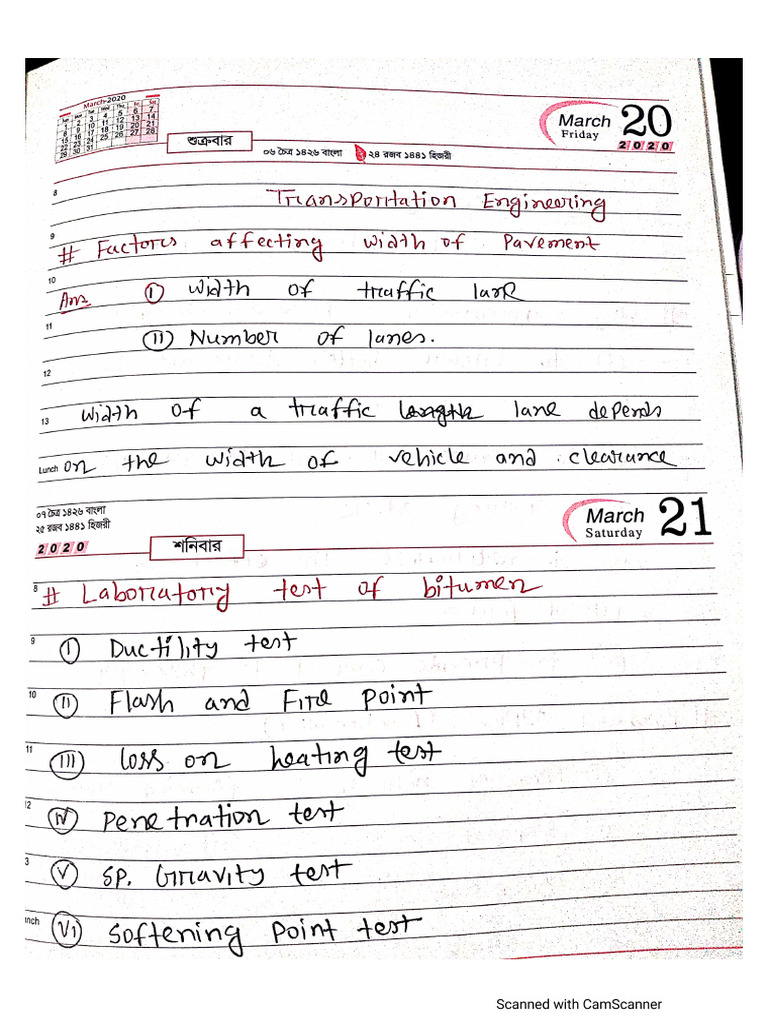 March-2020
Sun Mon Tue Wed Thu Fri Sat
1 2 3 4 5 6 7
8 9 10 11 12 13 14
15 16 17 18 19 20 21
22 23 24 25 26 27 28
29 30 31
শুক্রবার
০৬ চৈত্র ১৪২৬ বাংলা ২৪ রজব ১৪৪১ হিজরী
March 20
Friday 2020
8
Transportation Engineering
9
# Factors affecting width of Pavement
10
Ans. (I) Width of traffic lane
11
(II) Number of lanes.
12
13 Width of a traffic length lane depends
Lunch on the width of vehicle and clearance
০৭ চৈত্র ১৪২৬ বাংলা
২৫ রজব ১৪৪১ হিজরী
2020
শনিবার
March 21
Saturday
8 # Laboratory test of bitumen
9 (I) Ductility test
10 (II) Flash and Fire Point
11 (III) Loss on heating test
12 (IV) Penetration test
3 (V) SP. Gravity test
unch (VI) Softening Point test
Scanned with CamScanner